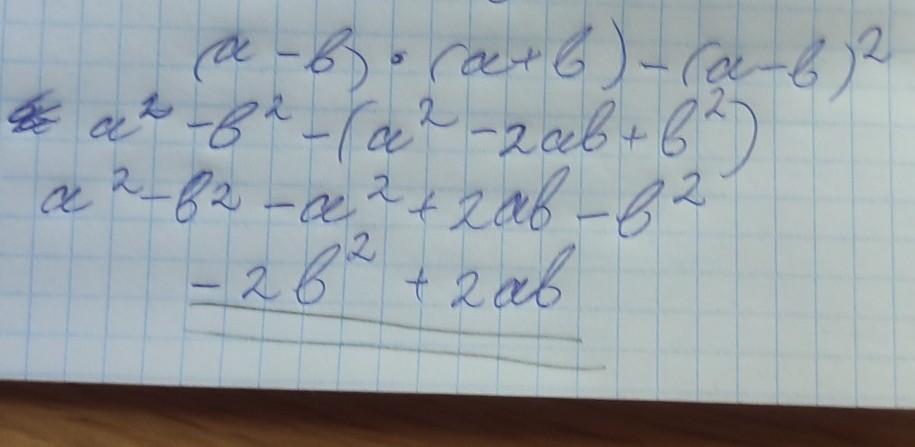 (a - b) · (a + b) - (a - b)²
a² - b² - (a² - 2ab + b²)
a² - b² - a² + 2ab - b²
- 2b² + 2ab